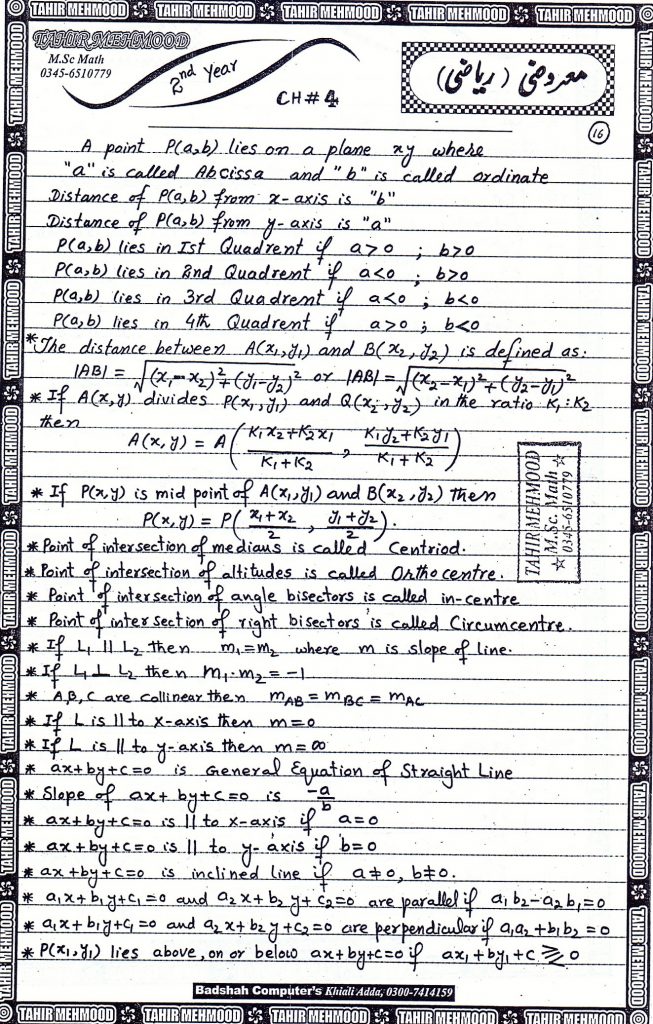 TAHIR MEHMOOD TAHIR MEHMOOD TAHIR MEHMOOD TAHIR MEHMOOD TAHIR MEHMOOD
TAHIR MEHMOOD
M.Sc Math
0345-6510779
2nd Year
CH # 4
معروضی (ریاضی)
16
A point P(a,b) lies on a plane xy where
"a" is called Abcissa and "b" is called ordinate
Distance of P(a,b) from x-axis is "b"
Distance of P(a,b) from y-axis is "a"
P(a,b) lies in Ist Quadrent if a>0 ; b>0
P(a,b) lies in 2nd Quadrent if a<0 ; b>0
P(a,b) lies in 3rd Quadrent if a<0 ; b<0
P(a,b) lies in 4th Quadrent if a>0 ; b<0
*The distance between A(x₁,y₁) and B(x₂,y₂) is defined as:
|AB| = √(x₁-x₂)²+(y₁-y₂)² or |AB| = √(x₂-x₁)²+(y₂-y₁)²
* If A(x,y) divides P(x₁,y₁) and Q(x₂,y₂) in the ratio K₁:K₂
then
A(x,y) = A((K₁x₂+K₂x₁)/(K₁+K₂), (K₁y₂+K₂y₁)/(K₁+K₂))
* If P(x,y) is mid point of A(x₁,y₁) and B(x₂,y₂) then
P(x,y) = P((x₁+x₂)/2, (y₁+y₂)/2).
* Point of intersection of medians is called Centriod.
* Point of intersection of altitudes is called Orthocentre.
* Point of intersection of angle bisectors is called in-centre
* Point of intersection of right bisectors is called Circumcentre.
* If L₁ || L₂ then m₁=m₂ where m is slope of line.
* If L₁ ⊥ L₂ then m₁.m₂ = -1
* A,B,C are collinear then m_AB = m_BC = m_AC
* If L is || to x-axis then m=0
* If L is || to y-axis then m=∞
* ax+by+c=0 is General Equation of Straight Line
* Slope of ax+by+c=0 is -a/b
* ax+by+c=0 is || to x-axis if a=0
* ax+by+c=0 is || to y-axis if b=0
* ax+by+c=0 is inclined line if a≠0, b≠0.
* a₁x+b₁y+c₁=0 and a₂x+b₂y+c₂=0 are parallel if a₁b₂-a₂b₁=0
* a₁x+b₁y+c₁=0 and a₂x+b₂y+c₂=0 are perpendicular if a₁a₂+b₁b₂=0
* P(x₁,y₁) lies above, on or below ax+by+c=0 if ax₁+by₁+c ⋛ 0
TAHIR MEHMOOD
☆ M.Sc. Math ☆
☆ 0345-6510779 ☆
Badshah Computer's Khiali Adda, 0300-7414159
TAHIR MEHMOOD TAHIR MEHMOOD TAHIR MEHMOOD TAHIR MEHMOOD TAHIR MEHMOOD